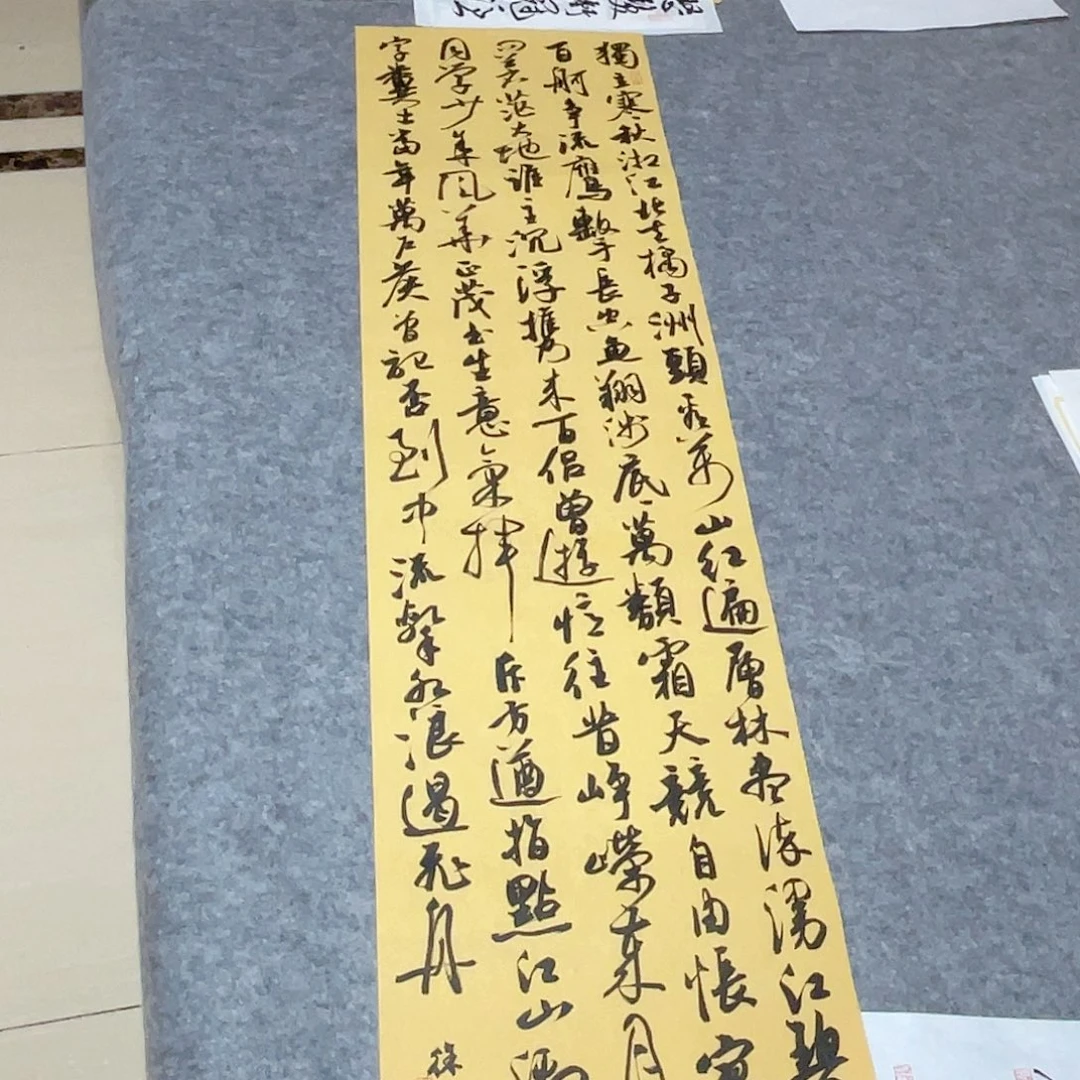 獨立寒秋湘江北去橘子洲頭看萬山红遍層林盡染漫江碧
百舸争流鷹擊長空魚翔淺底萬類霜天競自由悵寥
問蒼茫大地誰主沉浮携來百侣曾遊憶往昔崢嶸歲月
同學少年風華正茂書生意氣揮斥方遒指點江山激
字糞土當年萬户侯曾記否到中流擊水浪遏飛舟
徐